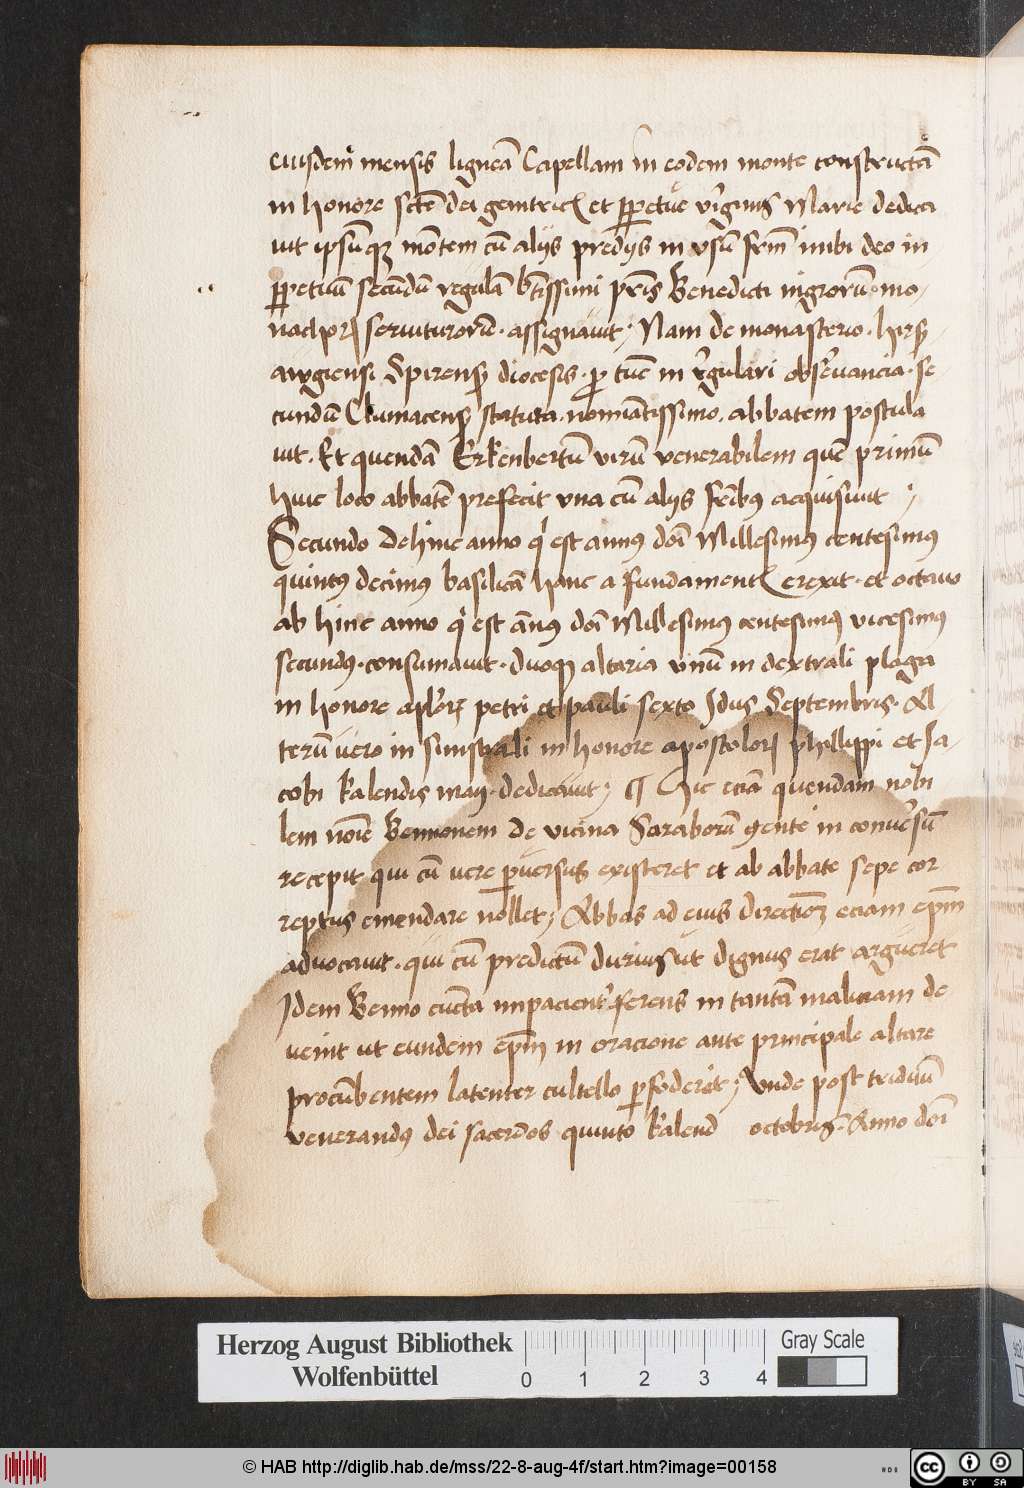 eiusdem mensis ligneā Capellam in eodem monte constructā
in honore sctē dei genitricꝭ et ꝑpetue v'ginis Marie dedica
uit ipsūqꝫ mōtem cū alijs predijs in vsū frm̄ inibi deo in-
ꝑpetuū secūdū regulā btīssimi pr̄is Benedicti nigrorū· mo-
nachoꝝ seruiturorū· assignauit; Nam de monasterio· hirs
awgiensi Spirens diocesis· ꝑ tūc in r'gulari obs'uancia· se
cundū Cluniacens statuta· nomīatissimo· abbatem postula
uit· Et quendā Erkenbertū virū venerabilem quē primū
huic loco abbatē prefecit vna cū alijs fr̄ibꝰ acquisiuit ;
Secundo dehinc anno qͥ est annus dōi Millesimꝰ centesimꝰ
quintꝰ decimꝰ basilicā hanc a fundamentꝭ erexit· et octauo
ab hinc anno qͥ est ānus dōi Millesimꝰ centesimꝰ vicesimꝰ
secundꝰ· consumauit· duoqꝫ altaria vnū in dextrali plaga
in honore aploꝝ petri et pauli sexto Idus Septembris· Al
terū vero in sinistrali in honore apostoloꝝ phillippi et Ja-
cobi kalendis maij· dedicauit; ¶ Hic eciā quendam nobi
lem noīe Bennonem de vicina Saraborū gente in conu'sū
recepit qui cū vere ꝑuersus existeret et ab abbate sepe cor
reptus emendare nollet; Abbas ad eius directionē eciam ep̄m
aduocauit· qui cū predictū duriꝰ ut dignus erat argueret
Idem Benno cūcta impacient' ferens in tantā maliciam de
uenit ut eundem ep̄m in oracione ante principale altare
procūbentem latenter cultello ꝑfoderet; Vnde post triduū
venerandꝰ dei sacerdos quinto kalend octobris· Anno dōi
Herzog August Bibliothek
Wolfenbüttel
0 1 2 3 4
Gray Scale
© HAB http://diglib.hab.de/mss/22-8-aug-4f/start.htm?image=00158
cc BY SA